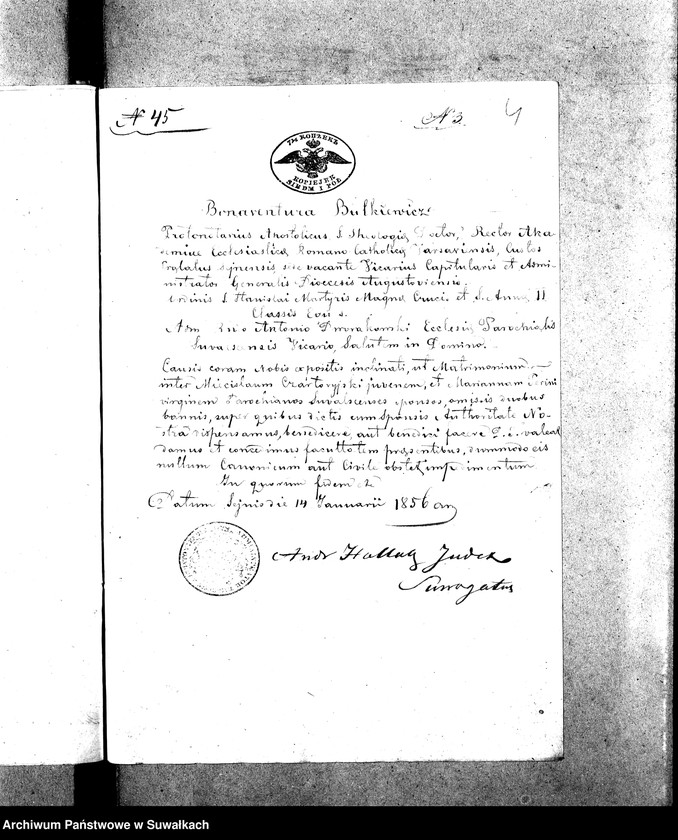 N 45
N 3. 4
7½ КОПѢЕКЪ
KOPIEJEK
SIEDM I PÓŁ
Bonaventura Butkiewicz
Protonotarius Apostolicus, S. Theologiæ Doctor, Rector Aka
demiæ Ecclesiasticæ Romano Catholicæ Varsaviensis, Custos
Prælatus Sejnensis, sede vacante Vicarius Capitularis et Admi-
nistrator Generalis Diœcesis Augustoviensis,
Ordinis S. Stanislai Martyris Magnæ Cruci, et S. Annæ II
Classis Equ s.
Adm Rndo Antonio Dworakowski Ecclesiæ Parochialis
Suvalsensis Vicario, Salutem in Domino.
Causis coram Nobis expositis inclinati, ut Matrimonium
inter Miecislaum Czartoryjski juvenem, et Mariannam
virginem Parochianos Suvalscenses sponsos, omissis duobus
bannis, super quibus dictis cum Sponsis Authoritate No-
stra dispensamus, benedicere, aut benedici facere valeat
damus et concedimus facultatem præsentibus, dummodo eis
nullum Canonicum aut Civile obstet impedimentum
In quorum fidem
Datum Sejnis die 14 Januarii 1856 an
Andr Judex
Surrogatus
Archiwum Państwowe w Suwałkach